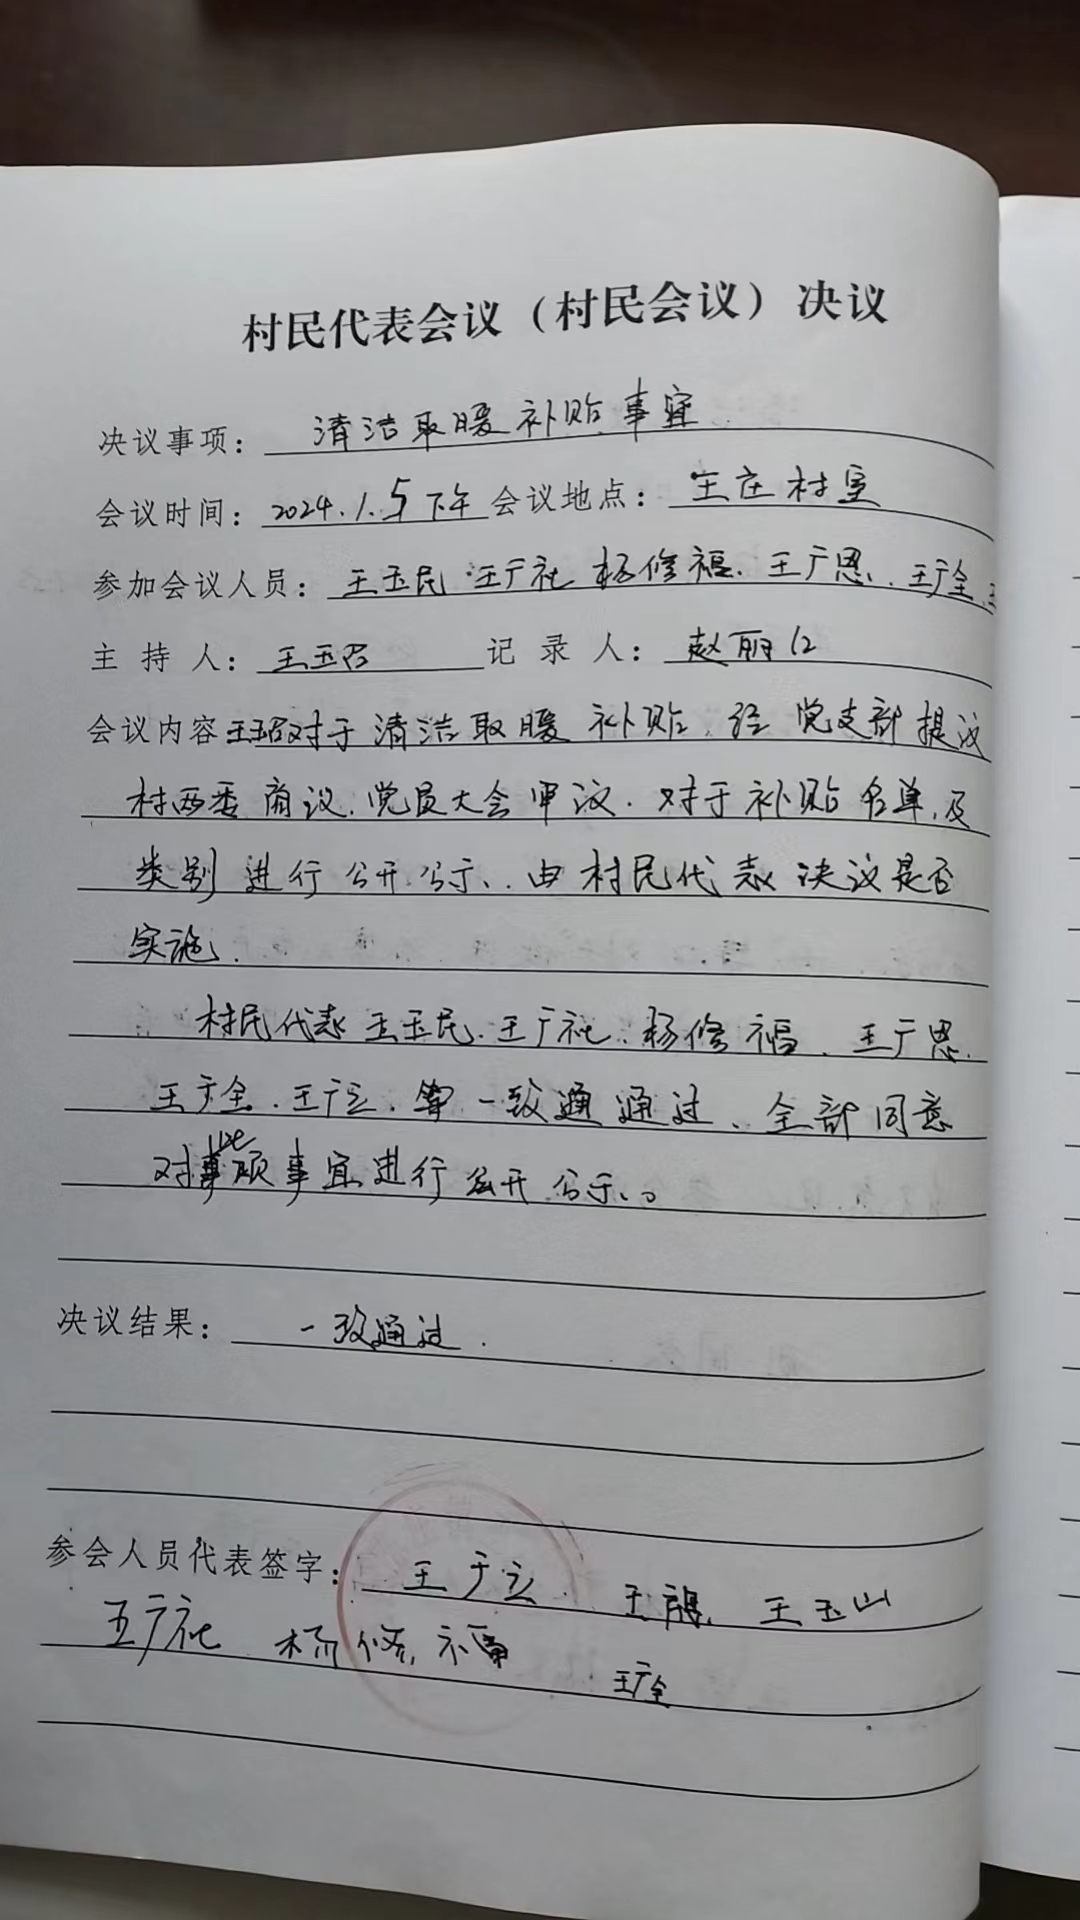 村民代表会议（村民会议）决议
决议事项： 清洁取暖补贴事宜
会议时间： 2024.1.5下午 会议地点： 王庄村室
参加会议人员： 王玉民 王广社 杨修福、王广恩、王广全、
主 持 人： 王玉 记 录 人： 赵丽
会议内容 王 对于清洁取暖补贴、经党支部提议
村两委商议、党员大会审议、对于补贴名单、及
类别进行公开公示、由村民代表决议是否
实施、
村民代表王玉民、王广社、杨修福、王广恩、
王广全、王广立、等一致通通过、全部同意
对 项事宜进行公开公示。
决议结果： 一致通过.
参会人员代表签字： 王广立 王 王玉山
王广社 杨修福 王广全